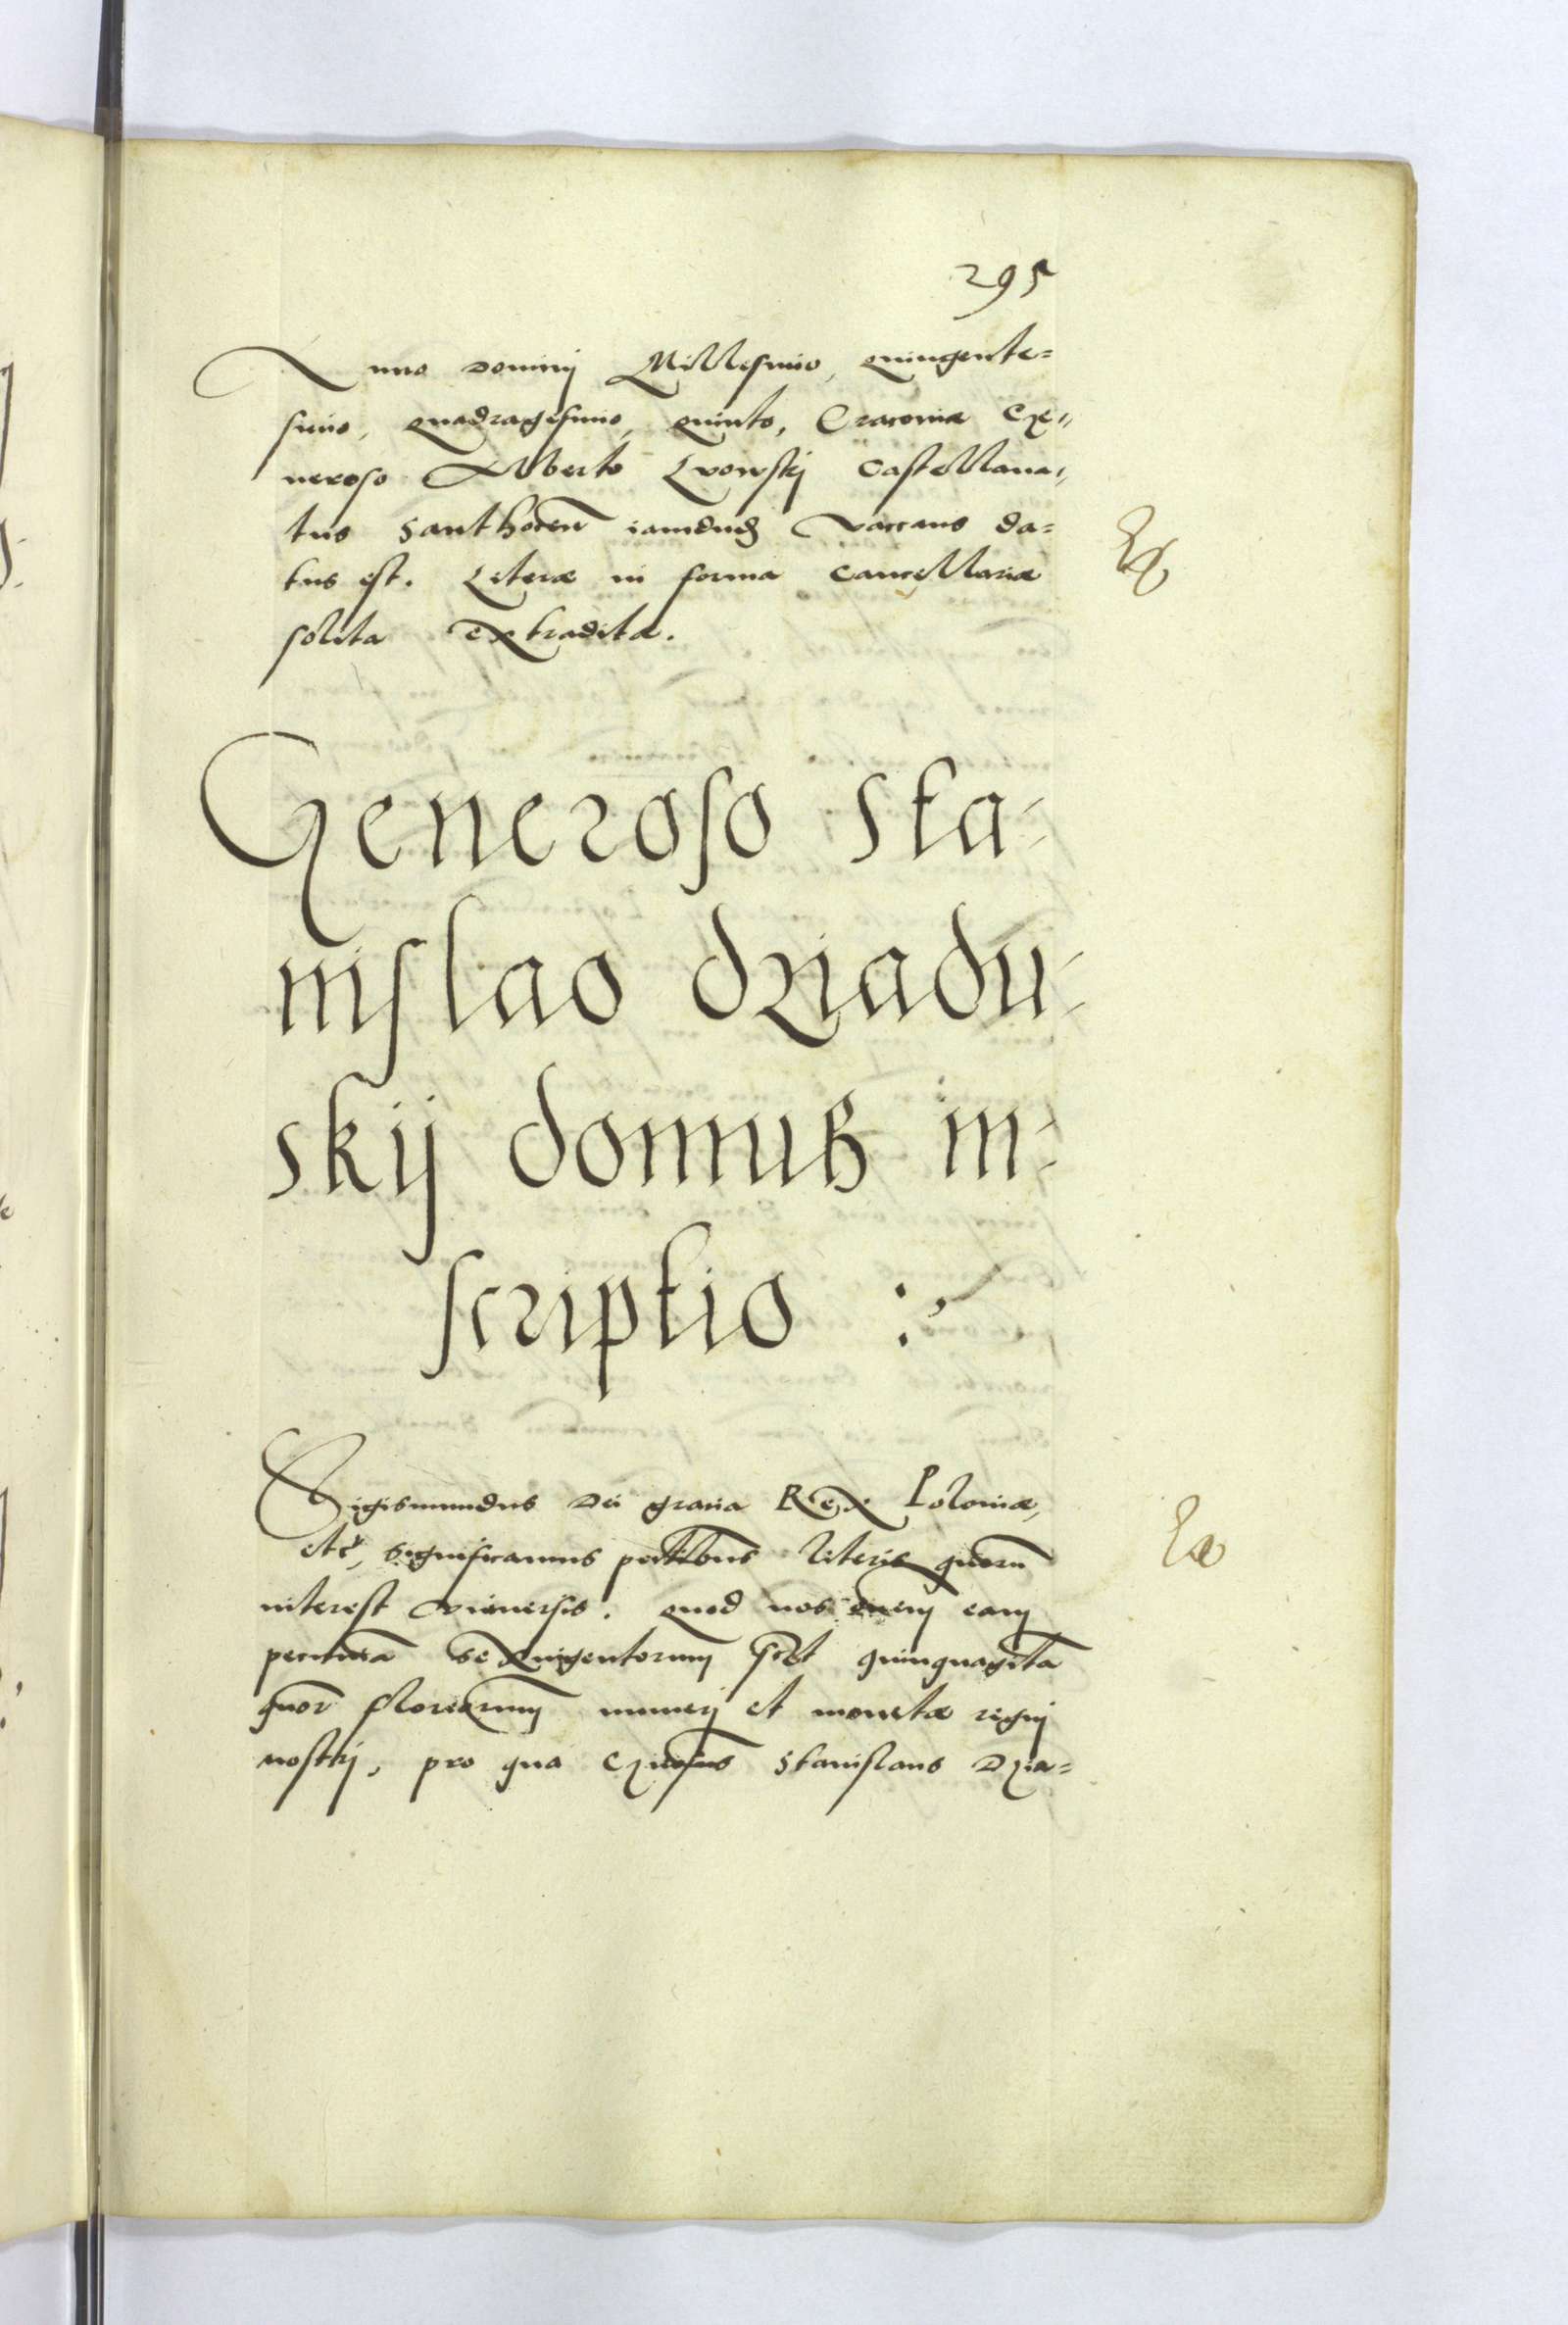 295
Anno Dominij Millesimo, quingente=
simo, quadragesimo, quinto, Cracoviæ Ge„
neroso Alberto Lvowskij Castellana„
tus Santhocen̄ iamdudũ vaccans da=
tus est. Literæ in forma Cancellariæ
solita extraditæ.
Generoso Sta-
nislao dziadu-
skij domus in-
scriptio :~
Sigismundus Dei gracia Rex Poloniæ,
etc̃, significamus p̃ntibus literis quorũ
interest vniuersis. Quod nos eam
pecuniã sexingentorum sc̃t quinquagĩta
quor̃ florenorum numerj et monetæ regnj
nostrj, pro qua Gn̄osus Stanislaus Dzia=